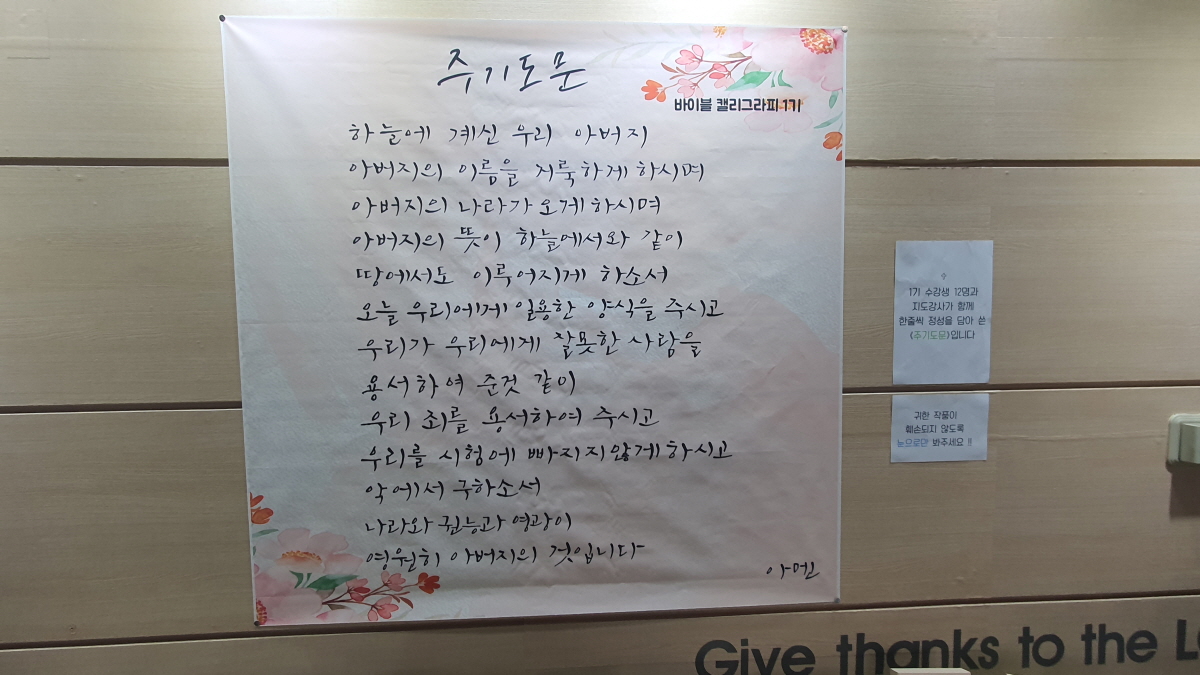 주기도문
바이블 캘리그라피 1기
하늘에 계신 우리 아버지
아버지의 이름을 거룩하게 하시며
아버지의 나라가 오게 하시며
아버지의 뜻이 하늘에서와 같이
땅에서도 이루어지게 하소서
오늘 우리에게 일용한 양식을 주시고
우리가 우리에게 잘못한 사람을
용서하여 준것 같이
우리 죄를 용서하여 주시고
우리를 시험에 빠지지않게 하시고
악에서 구하소서
나라와 권능과 영광이
영원히 아버지의 것입니다
아멘
1기 수강생 12명과
지도강사가 함께
한줄씩 정성을 담아 쓴
《주기도문》입니다
귀한 작품이
훼손되지 않도록
눈으로만 봐주세요 !!
Give thanks to the